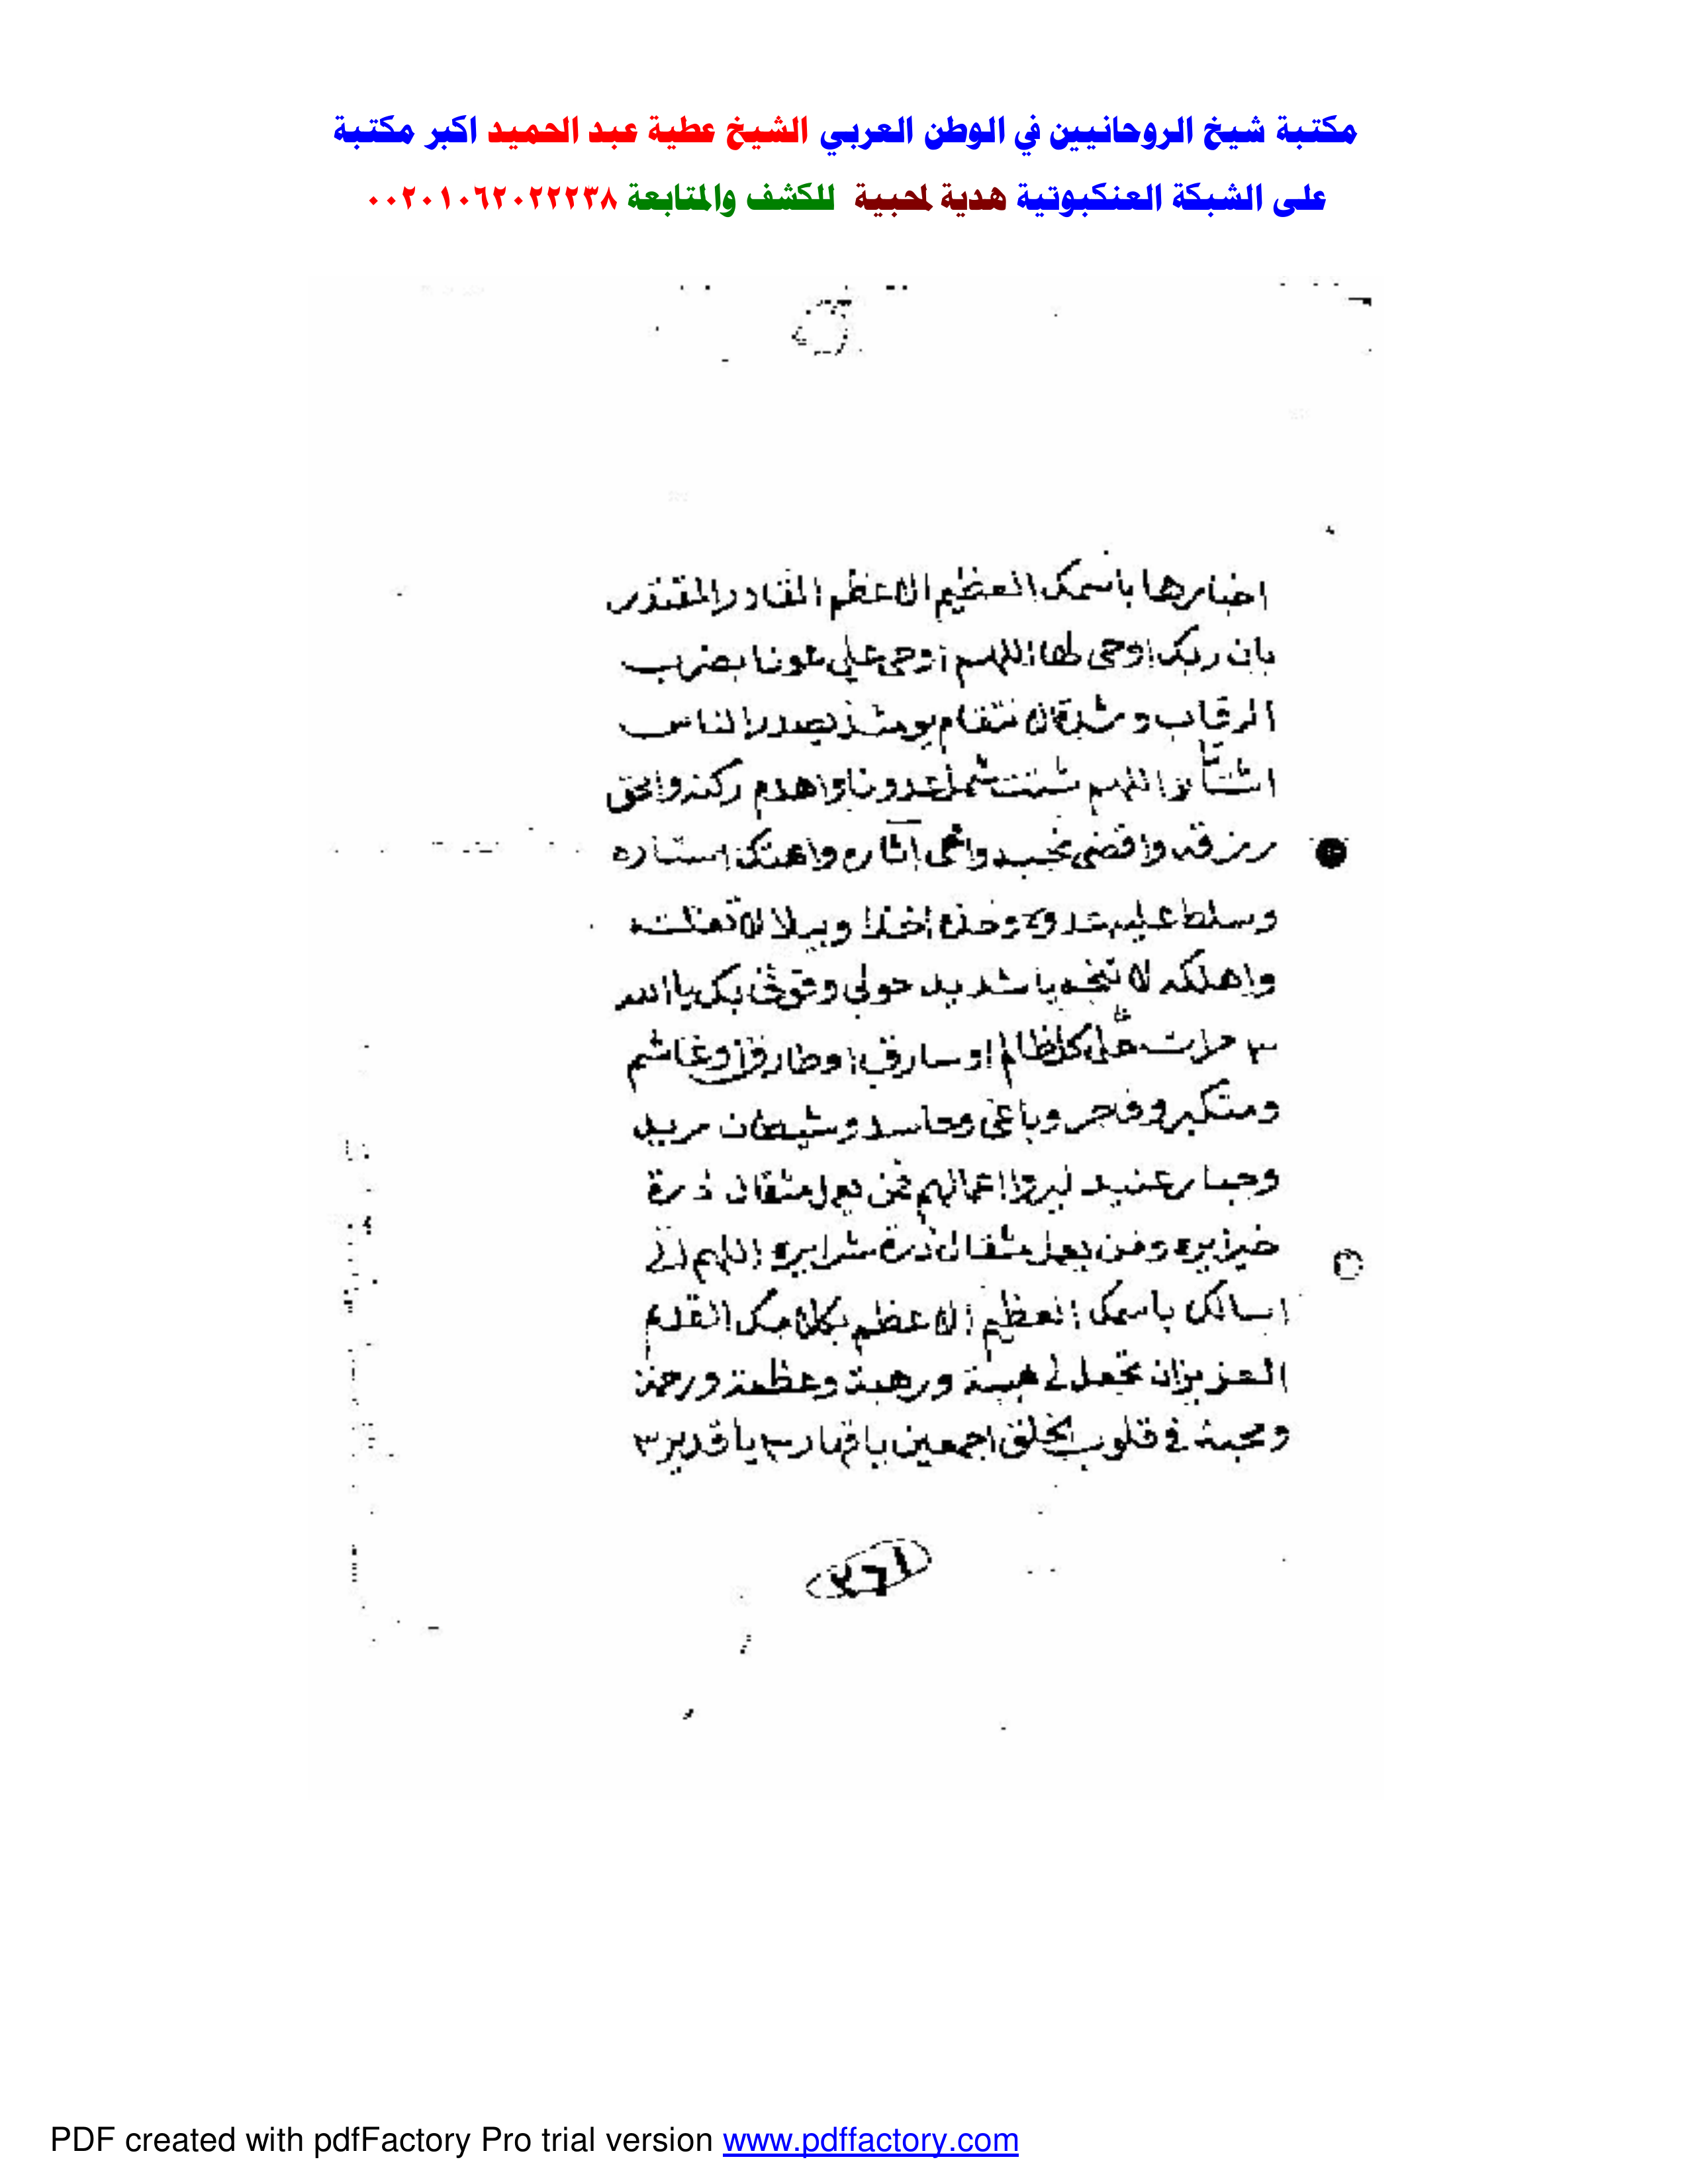 مكتبة شيخ الروحانيين في الوطن العربي الشيخ عطية عبد الحميد اكبر مكتبة
على الشبكة العنكبوتية هدية لمحبية للكشف والمتابعة ٠٠٢٠١٠٦٢٠٢٢٢٣٨
اخبارها باسمك العظيم الاعظم القادر المقتدر
بان ربك اوحى لها اللهم اوحى على عونا بضرب
الرقاب وشدة الانتقام يومئذ يصدر الناس
اشتاتا اللهم شتت شمل عدونا واهدم ركنه وامحق
رزقه واقضى نحبه وامحى اثاره واهتك استاره
وسلط عليه عدوه وخذه اخذا وبيلا لا تفلته
واهلكه لا تنجه يا شديد حولى وقوتى بك يا الله
٣ مرات على كل ظالم او سارق او طارق او غاشم
ومتكبر وفاجر وباغى وحاسد وشيطان مريد
وجبار عنيد ليروا اعمالهم فمن يعمل مثقال ذرة
خيرا يره ومن يعمل مثقال ذرة شرا يره اللهم انى
اسالك باسمك العظيم الاعظم بكلامك القديم
العزيز ان تجعل لى هيبة ورهبة وعظمة ورحمة
ومحبة فى قلوب الخلق اجمعين يا قهار ٣ يا قدير ٣
PDF created with pdfFactory Pro trial version www.pdffactory.com